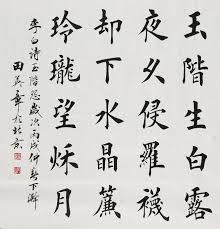 玉階生白露
夜久侵羅襪
却下水晶簾
玲瓏望秋月
李白詩玉階怨歲次丙戌仲春下澣
田英章於北京